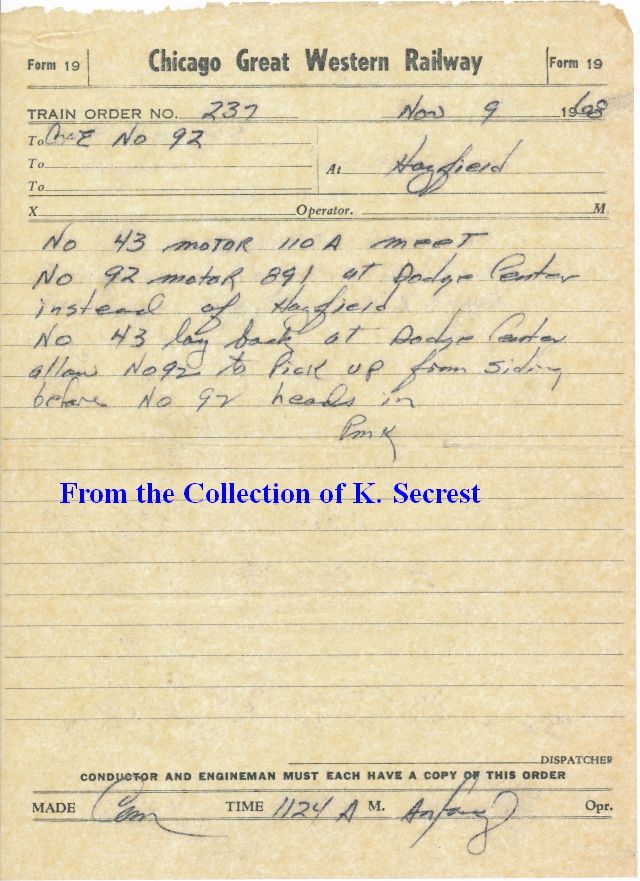 Form 19 Chicago Great Western Railway Form 19
TRAIN ORDER NO. 237 Nov 9 1968
To C&E No 92
To
To
At Hayfield
X Operator. M
No 43 motor 110A meet
No 92 motor 891 at Dodge Center
instead of Hayfield
No 43 lay back at Dodge Center
allow No92 to Pick up from siding
before No 92 heads in
PMK
From the Collection of K. Secrest
DISPATCHER
CONDUCTOR AND ENGINEMAN MUST EACH HAVE A COPY OF THIS ORDER
MADE Com TIME 1124 A M. Opr.